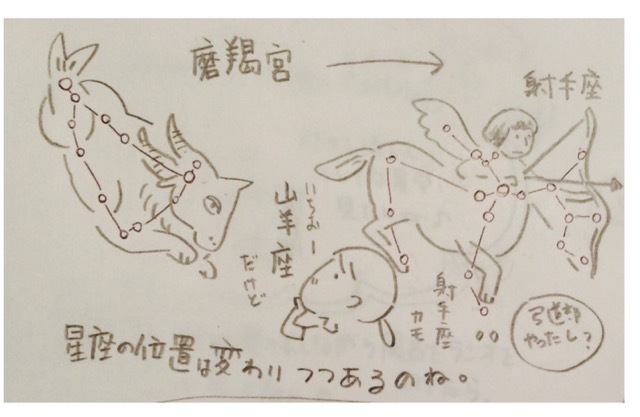 磨羯宮
射手座
いちおー
山羊座
だけど
射手座
カモ
弓道部
やったし?
星座の位置は変わりつつあるのね。